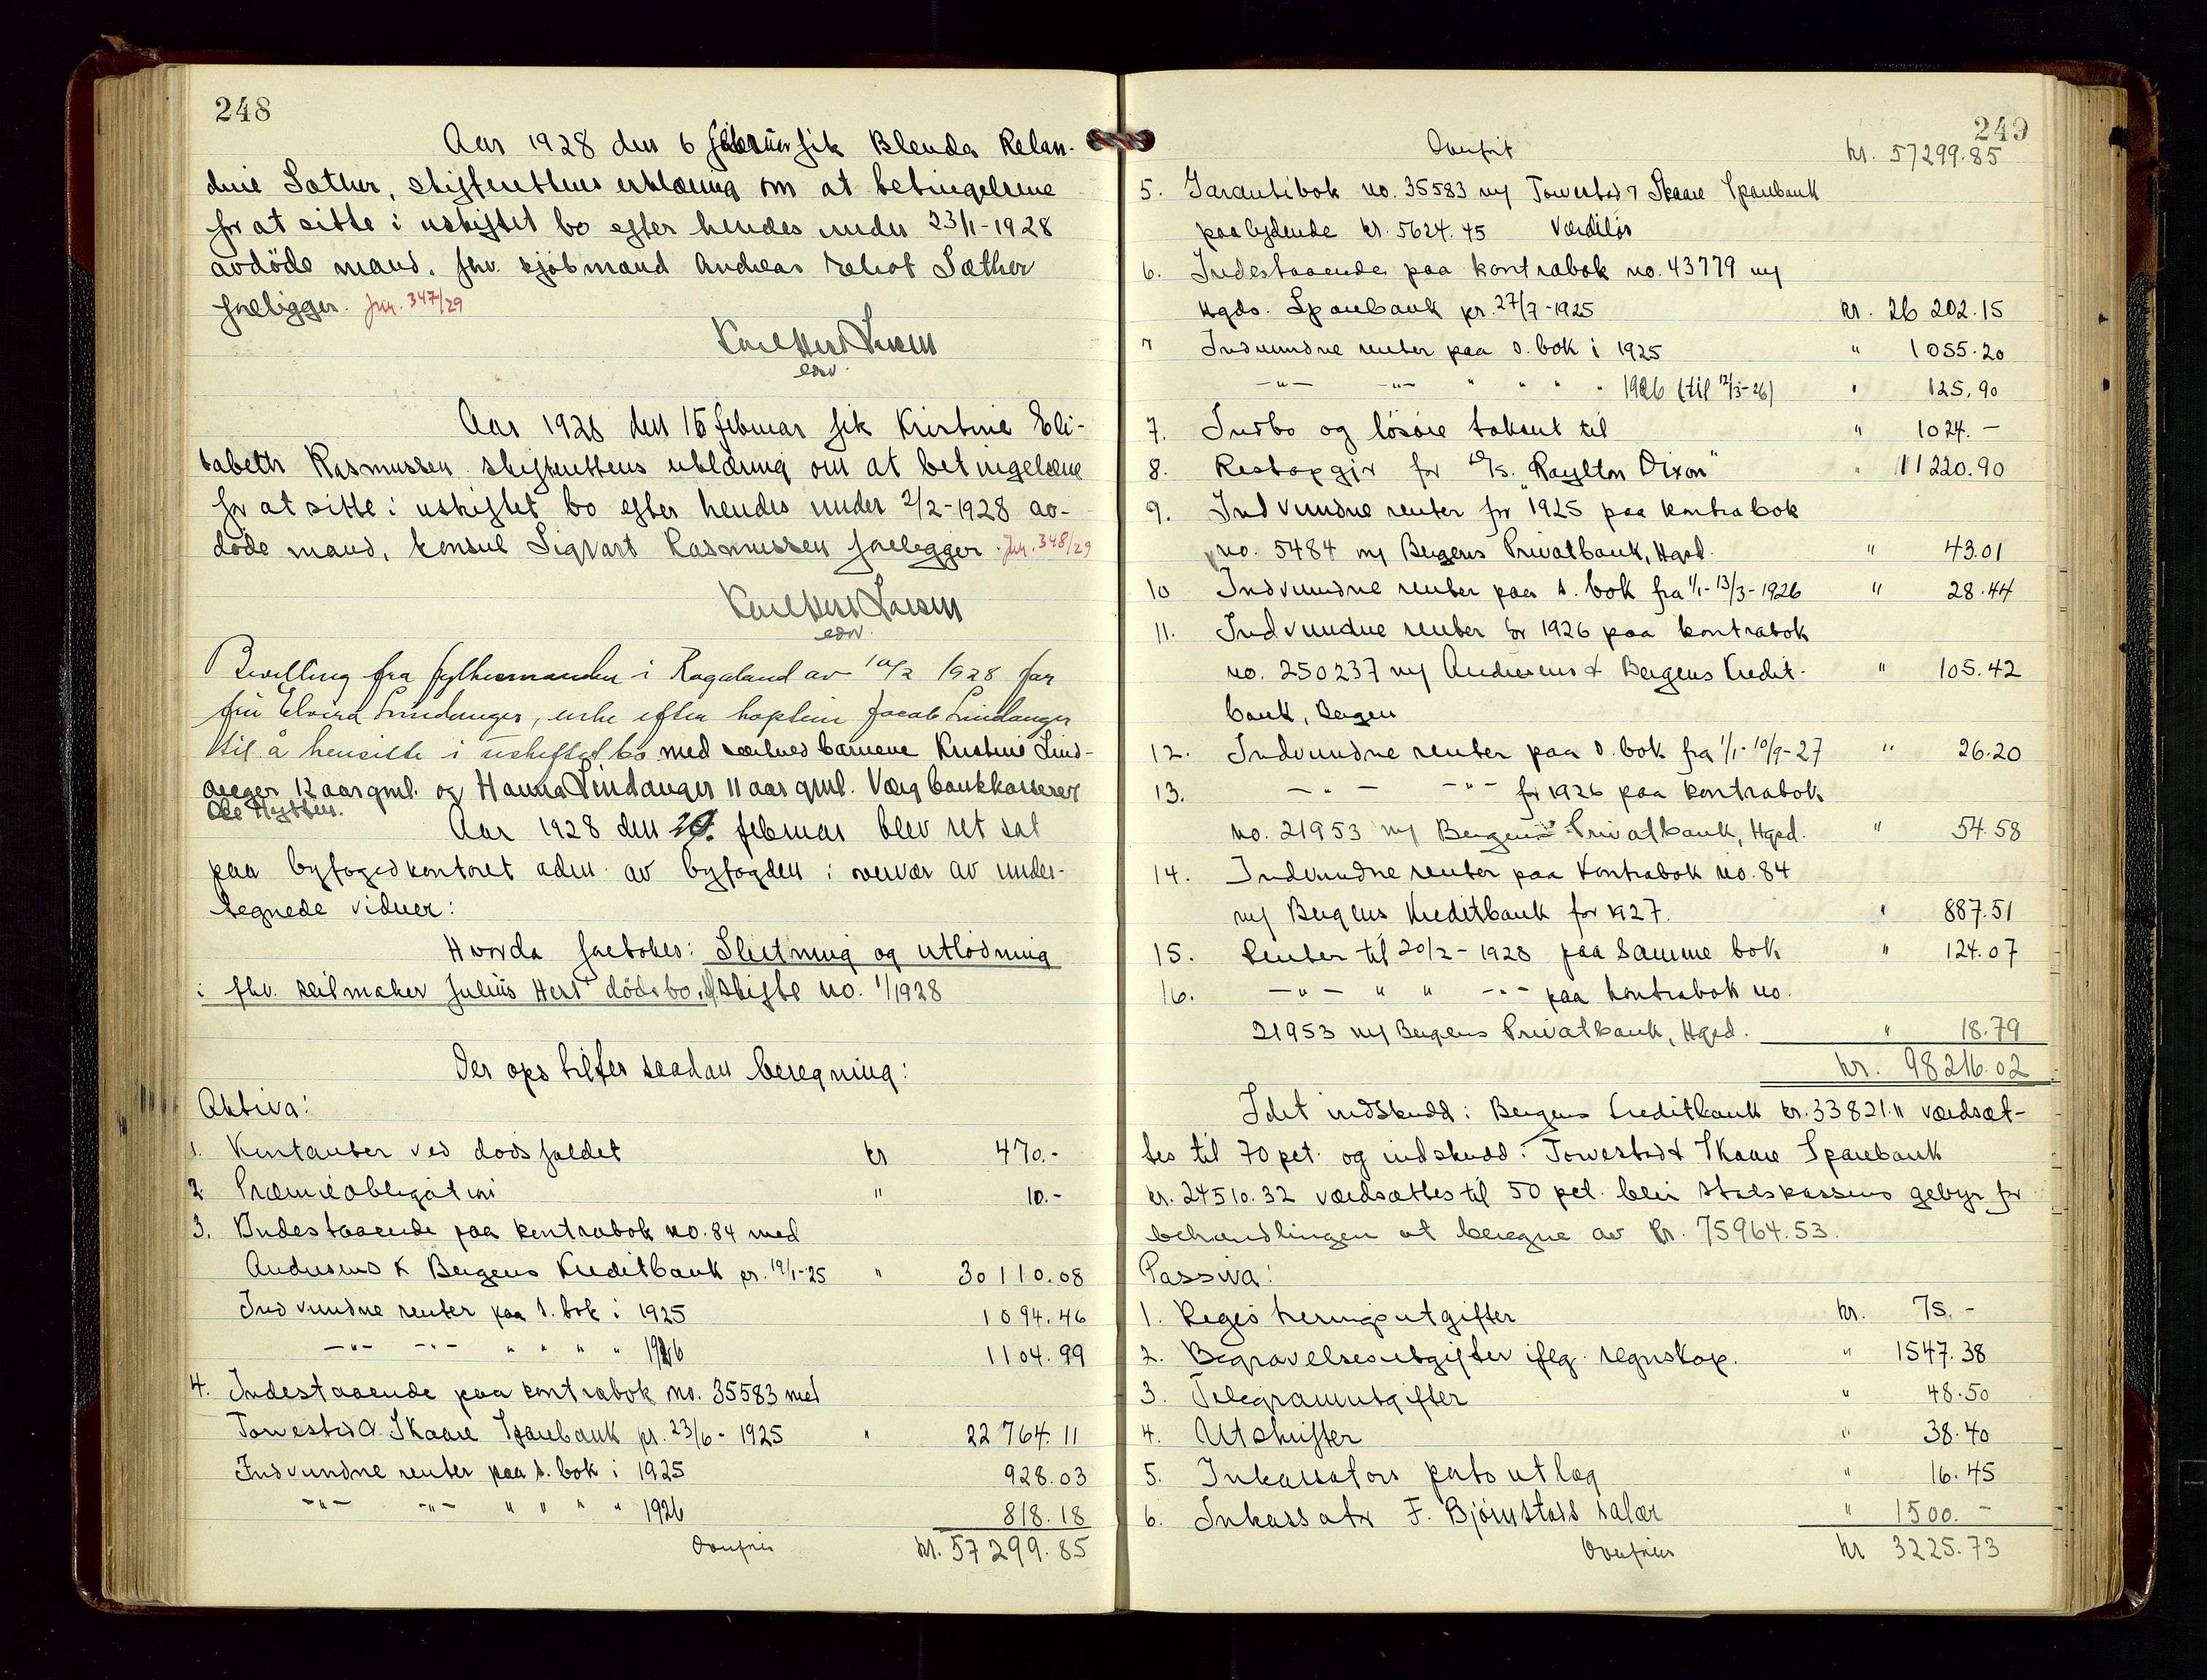 248
Aar 1928 den 6 februar fik Blenda Relan-
dine Sæther, skifterettens erklæring om at betingelsene
for at sitte i uskiftet bo efter hendes under 23/1-1928
avdöde mand, fhv. kjöbmand Andreas Sæther
foreligger. Jnr. 347/29
Karl Hers Larsen
edv.
Aar 1928 den 15 februar fik Kristine Eli-
sabeth Rasmussen skifterettens erklæring om at betingelsene
for at sitte i uskiftet bo efter hendes under 2/2-1928 av-
döde mand, konsul Sigvart Rasmussen foreligger. Jnr. 348/29
Karl Hers Larsen
edv.
Bevilling fra fylkesmanden i Rogaland av 10/2 1928 for
fru Elvira Lindanger, enke efter kaptein Jacob Lindanger
til å hensitte i uskiftet bo med særlivsbarnene Kristine Lind-
anger 12 aar gml. og Hanna Lindanger 11 aar gml. Værg bankkasserer
Ole Hytten.
Aar 1928 den 20. februar blev ret sat
paa byfogedkontoret adm. av byfogden i overvær av under-
tegnede vidner:
Hvorda foretokes: Slutning og utlodning
i fhv. seilmaker Julius Hers' dödsbo, skifte no. 1/1928
Der opstilles saadan beregning:
Aktiva:
1. Kontanter ved dödsfaldet kr 470.-
2 Præmieobligation " 10.-
3. Indestaaende paa kontrabok no. 84 med
Andresens & Bergens Kreditbank pr. 19/1-25 " 30110.08
Indvundne renter paa s. bok i 1925 1094.46
-"- -"- " " " " 1926 1104.99
4. Indestaaende paa kontrabok no. 35583 med
Torvestad & Skaare Sparebank pr. 23/6-1925 " 22764.11
Indvundne renter paa s. bok i 1925 928.03
-"- -"- " " " " 1926 818.18
Overføres kr. 57299.85
249
Overført kr. 57299.85
5. Garantibok no. 35583 m/ Torvestad & Skaare Sparebank
paalydende kr. 5624.45 Værdilös
6. Indestaaende paa kontrabok no. 43779 m/
Hgds. Sparebank pr. 27/7-1925 kr. 26202.15
" Indvundne renter paa s. bok i 1925 " 1055.20
-"- -"- " " " " 1926 (til 12/3-26) " 125.90
7. Indbo og lösöre taksert til " 1024.-
8. Restopgjör for D/S. "Raylton Dixon" " 11220.90
9. Indvundne renter for 1925 paa kontrabok
no. 5484 m/ Bergens Privatbank, Hgsd. " 43.01
10 Indvundne renter paa s. bok fra 1/1-13/3-1926 " 28.44
11. Indvundne renter for 1926 paa kontrabok
no. 250237 m/ Andresens & Bergens Kredit- " 105.42
bank, Bergen
12. Indvundne renter paa s. bok fra 1/1-10/9-27 " 26.20
13. -"- -"- for 1926 paa kontrabok
no. 21953 m/ Bergens Privatbank, Hgsd. " 54.58
14. Indvundne renter paa kontrabok no. 84
m/ Bergens Kreditbank for 1927. " 887.51
15. Renter til 20/2-1928 paa samme bok " 124.07
16. -"- " " -"- paa kontrabok no.
21953 m/ Bergens Privatbank, Hgsd. " 18.79
kr. 98216.02
Idet indskudd i Bergens Kreditbank kr. 33821.11 værdsæt-
tes til 70 pct. og indskudd i Torvestad & Skaare Sparebank
kr. 24510.32 værdsættes til 50 pct. blir statskassens gebyr for
behandlingen at beregne av kr. 75964.53.
Passiva:
1. Registreringsutgifter kr. 75.-
2. Begravelsesutgifter iflg. regnskap. " 1547.38
3. Telegramutgifter " 48.50
4. Utskrifter " 38.40
5. Inkassators porto utlæg " 16.45
6. Inkassator F. Björnstads salær " 1500.-
Overføres kr 3225.73